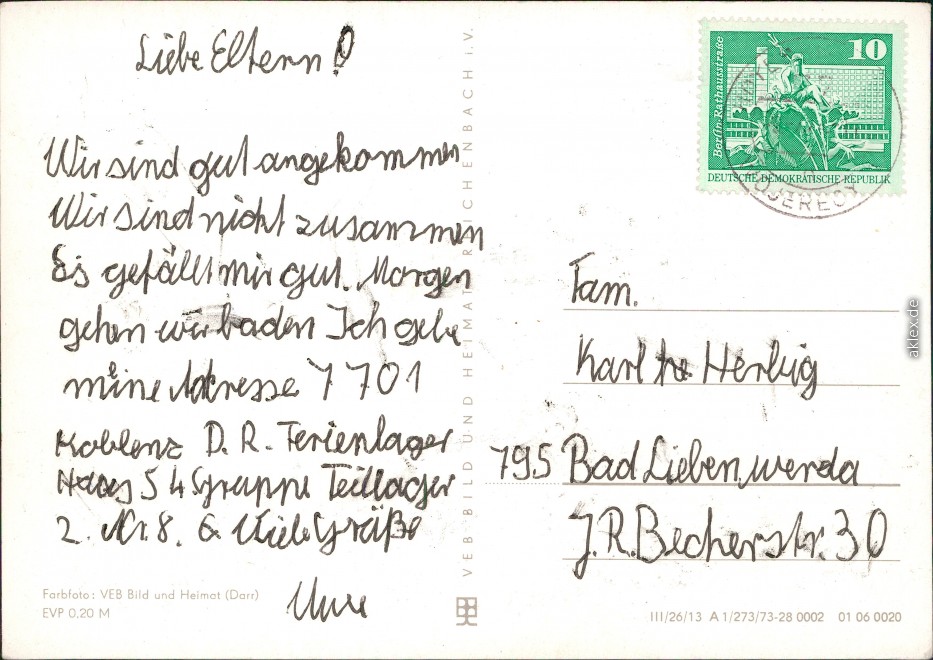 Liebe Eltern!
Wir sind gut angekommen
Wir sind nicht zusammen
Es gefällt mir gut. Morgen
gehen wir baden Ich gebe
meine Adresse 7701
Koblenz D. R. Ferienlager
Haus 5 4 Gruppe Teillager
2. Nr. 8. 6 Viele Grüße
Uwe
Farbfoto: VEB Bild und Heimat (Darr)
EVP 0,20 M
VEB BILD UND HEIMAT REICHENBACH I.V.
Berlin-Rathausstraße
10
DEUTSCHE DEMOKRATISCHE REPUBLIK
Fam.
Karl Herbig
795 Bad Liebenwerda
J.R.Becherstr. 30
III/26/13 A 1/273/73-28 0002 01 06 0020
aklex.de